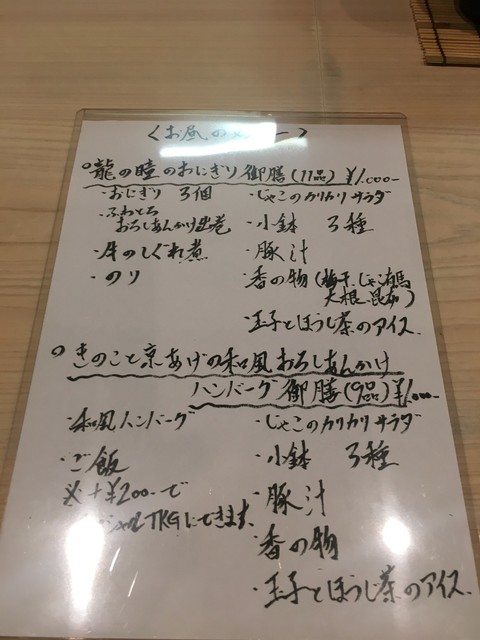 <お昼のメニュー>
○龍の瞳のおにぎり御膳(11品)¥1,000-
・おにぎり 3個
・ふわとろ
おろしあんかけ出巻
・牛のしぐれ煮
・のり
・じゃこのカリカリサラダ
・小鉢 3種
・豚汁
・香の物(梅干、じゃこ有馬
大根、昆布)
・玉子とほうじ茶のアイス
○きのこと京あげの和風おろしあんかけ
ハンバーグ御膳(9品)¥1,000-
・和風ハンバーグ
・ご飯
※+¥200-で
TKGにできます
・じゃこのカリカリサラダ
・小鉢 3種
・豚汁
・香の物
・玉子とほうじ茶のアイス